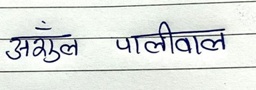 अंशुल पालीवाल